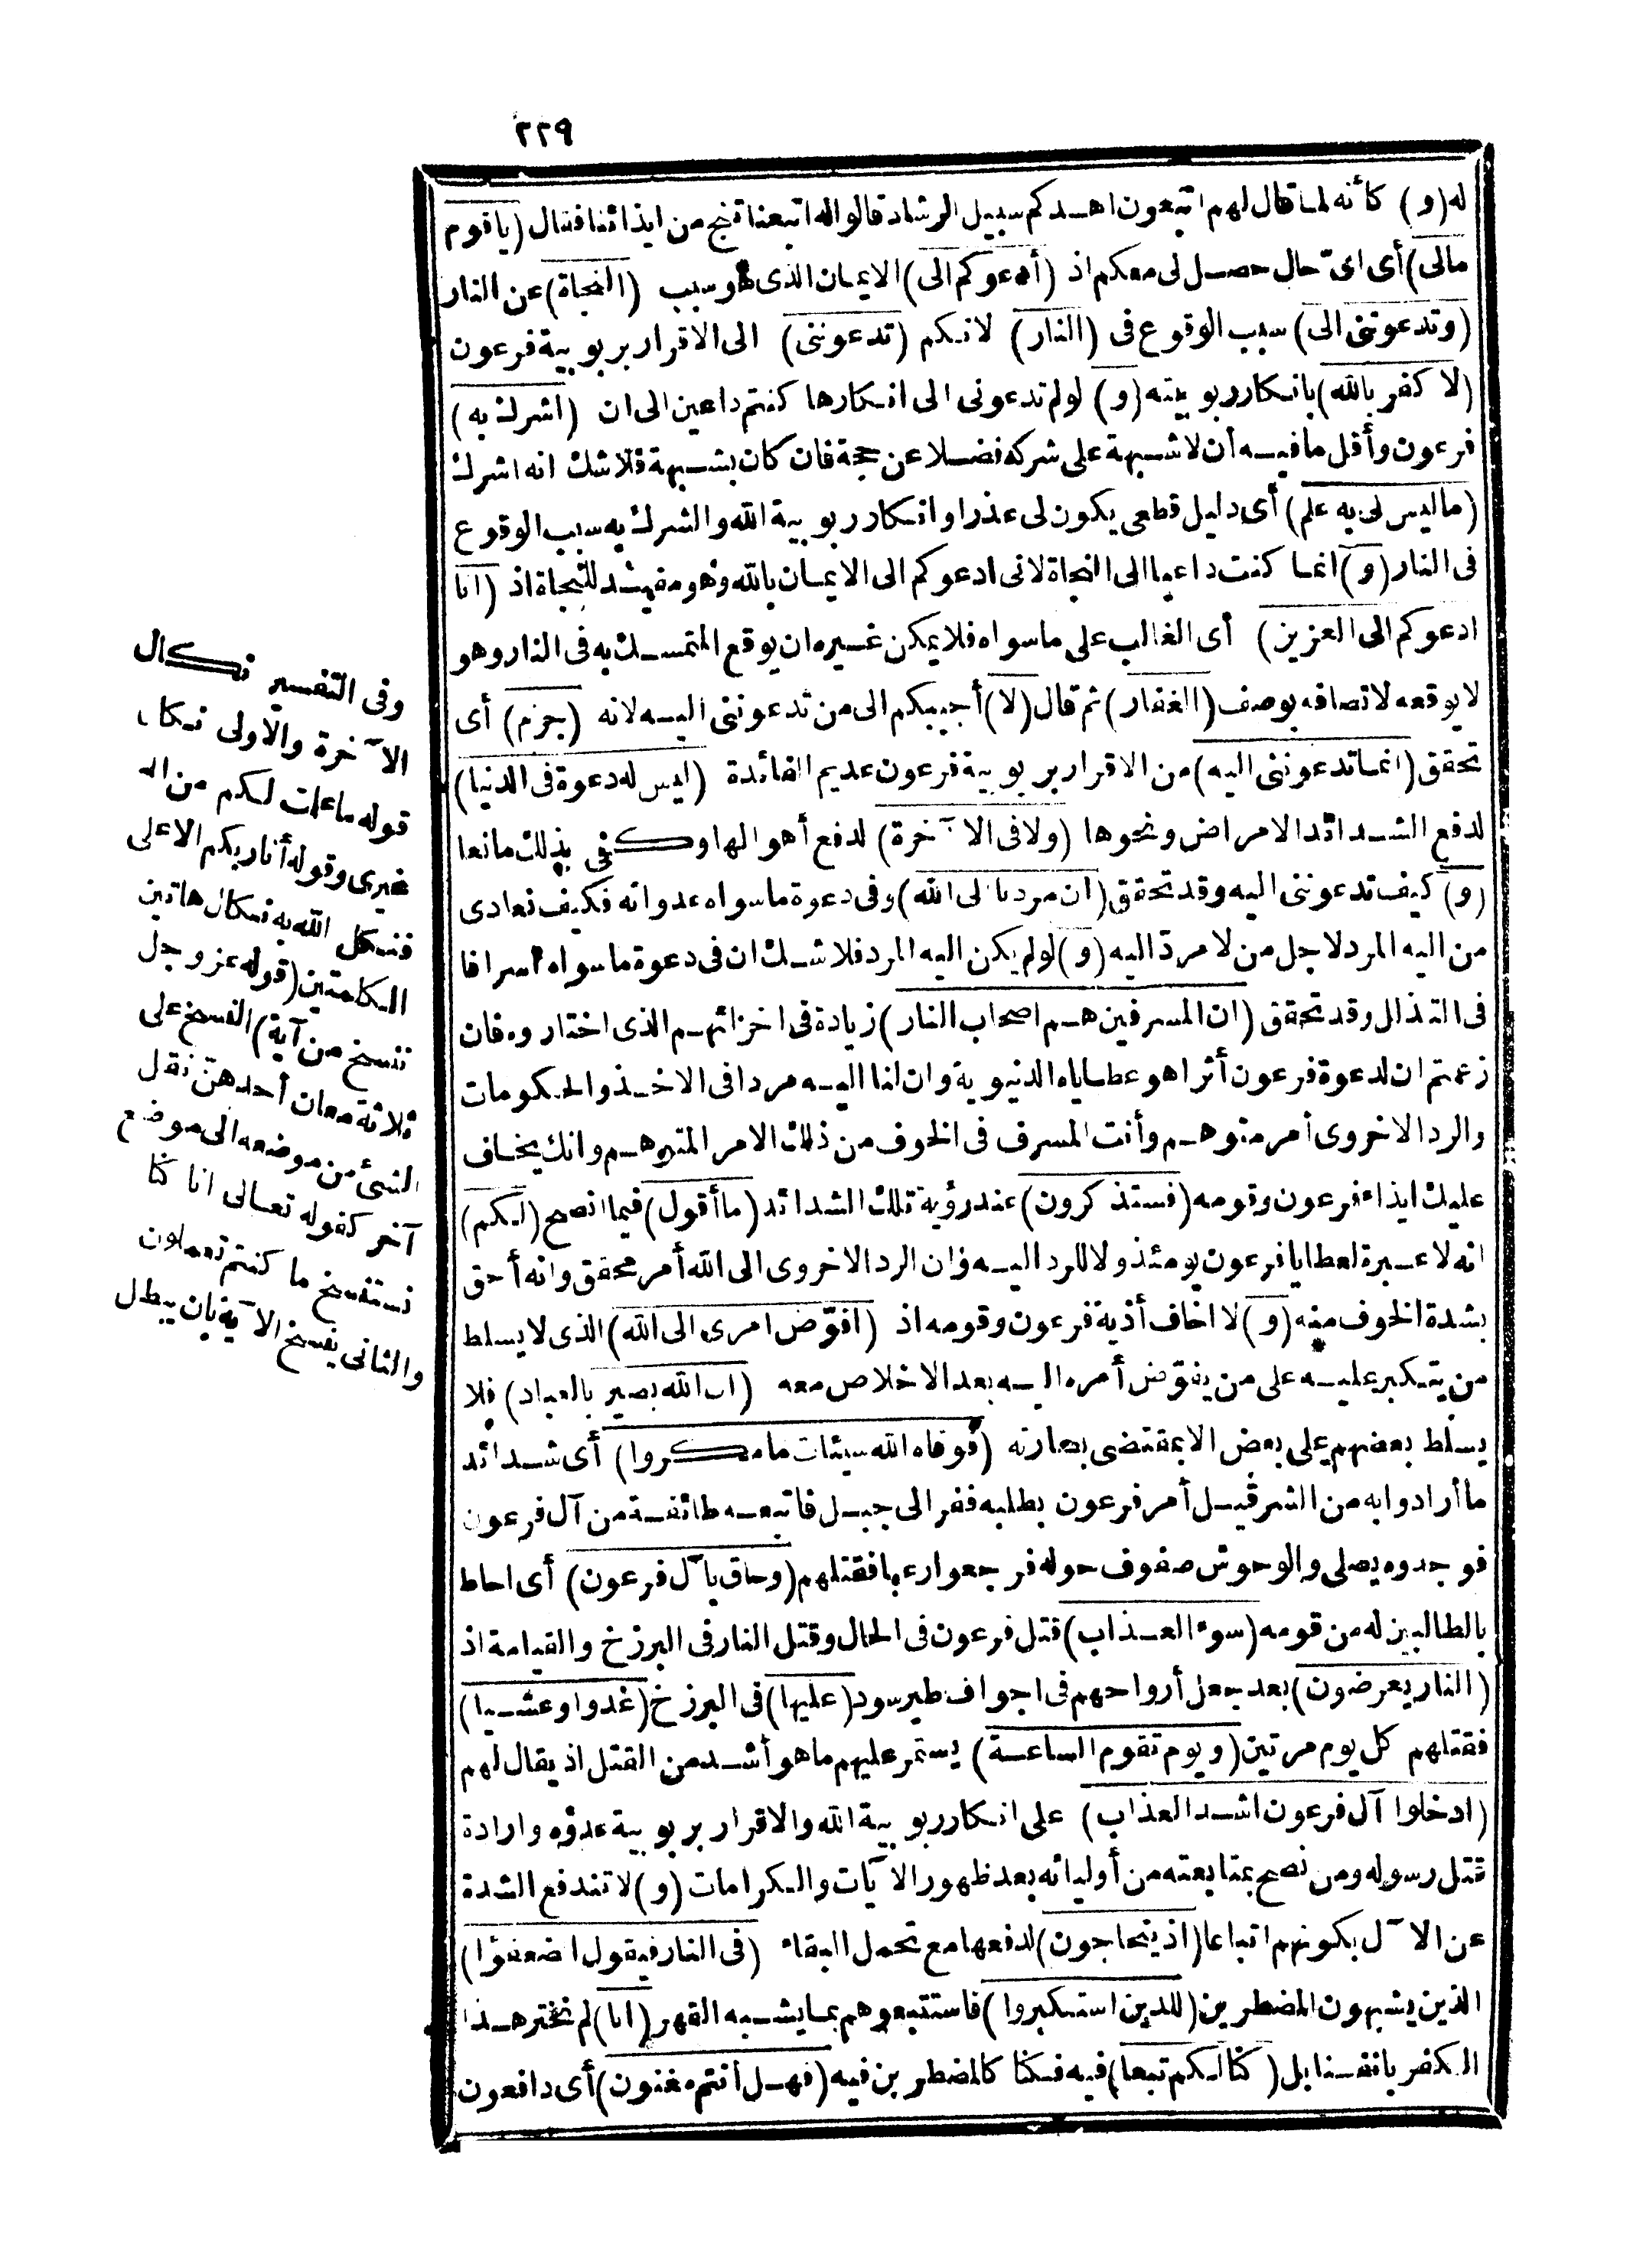 ٢٢٩
له (و) كأنه لما قال لهم اتبعون اهدكم سبيل الرشاد قالوا له اتبعنا تنج من ايذائنا فقال (ياقوم
مالى) أى اىّ حال حصل لى معكم اذ (أدعوكم الى) الايمان الذى هو سبب (النجاة) عن النار
(وتدعوننى الى) سبب الوقوع فى (النار) لانكم (تدعوننى) الى الاقرار بربوبية فرعون
(لا كفر بالله) بانكار ربوبيته (و) لولم تدعونى الى انكارها كنتم داعين الى ان (اشرك به)
فرعون وأقل مافيه أن لا شبهة على شركه فضلا عن حجة فان كان بشبهة فلاشك انه اشرك
(ماليس لى به علم) أى دليل قطعى يكون لى عذرا وانكار ربوبية الله والشرك به سبب الوقوع
فى النار (و) انما كنت داعيا الى النجاة لانى ادعوكم الى الايمان بالله وهو مفيد للنجاة اذ (انا
ادعوكم الى العزيز) أى الغالب على ماسواه فلا يمكن غيره ان يوقع المتمسك به فى النار وهو
لا يوقعه لاتصافه بوصف (الغفار) ثم قال (لا) أجيبكم الى من تدعوننى اليه لانه (جرم) أى
تحقق (انما تدعوننى اليه) من الاقرار بربوبية فرعون عديم الفائدة (ليس له دعوة فى الدنيا)
لدفع الشدائد الامراض ونحوها (ولا فى الآخرة) لدفع أهوالها وكفى بذلك مانعا
(و) كيف تدعوننى اليه وقد تحقق (ان مردنا الى الله) وفى دعوة ماسواه عدوانه فكيف نعادى
من اليه المرد لاجل من لا مردّ اليه (و) لولم يكن اليه المرد فلاشك ان فى دعوة ماسواه اسرافا
فى التذلل وقد تحقق (ان المسرفين هم اصحاب النار) زيادة فى اخزائهم الذى اختاروه فان
زعمتم ان لدعوة فرعون أثرا هو عطاياه الدنيوية وان لنا اليه مردا فى الاخذ والحكومات
والرد الاخروى أمر متوهم وأنت المسرف فى الخوف من ذلك الامر المتوهم وانك يخاف
عليك ايذاء فرعون وقومه (فستذكرون) عند رؤية تلك الشدائد (ما أقول) فيما انصح (لكم)
انه لا عبرة لعطايا فرعون يومئذ ولا للرد اليه وان الرد الاخروى الى الله أمر محقق وانه أحق
بشدة الخوف منه (و) لا اخاف أذية فرعون وقومه اذ (افوّض امرى الى الله) الذى لا يسلط
من يتكبر عليه على من يفوّض أمره اليه بعد الاخلاص معه (ان الله بصير بالعباد) فلا
يسلط بعضهم على بعض الا بمقتضى بصارته (فوقاه الله سيئات مامكروا) أى شدائد
ما أرادوا به من الشر قيل أمر فرعون بطلبه ففر الى جبل فاتبعه طائفة من آل فرعون
فوجدوه يصلى والوحوش صفوف حوله فرجعوا رعبا فقتلهم (وحاق بآل فرعون) أى احاط
بالطالبين له من قومه (سوء العذاب) قتل فرعون فى الحال وقتل النار فى البرزخ والقيامة اذ
(النار يعرضون) بعد جعل أرواحهم فى اجواف طير سود (عليها) فى البرزخ (غدوا وعشيا)
فقتلهم كل يوم مرتين (ويوم تقوم الساعة) يستمر عليهم ما هو أشد من القتل اذ يقال لهم
(ادخلوا آل فرعون اشد العذاب) على انكار ربوبية الله والاقرار بربوبية عدوّه وارادة
قتل رسوله ومن نصح بمتابعته من أوليائه بعد ظهور الآيات والكرامات (و) لا تندفع الشدة
عن الآل بكونهم اتباعا (اذ يتحاجون) لدفعها مع تحمل البقاء (فى النار فيقول الضعفؤا)
الذين يشبهون المضطرين (للذين استكبروا) فاستتبعوهم بما يشبه القهر (انا) لم نختر هذا
الكفر بانفسنا بل (كنا لكم تبعا) فيه فكنا كالمضطرين فيه (فهل أنتم مغنون) أى دافعون
وفى التفسير نكال
الآخرة والاولى نكال
قوله ماعلمت لكم من اله
غيرى وقوله أنا ربكم الاعلى
فنكل الله به نكال هاتين
الكلمتين (قوله عز وجل
ننسخ من آية) النسخ على
ثلاثة معان أحدهن نقل
الشئ من موضعه الى موضع
آخر كقوله تعالى انا كنا
نستنسخ ما كنتم تعملون
والثانى ينسخ الآية بان يبطل